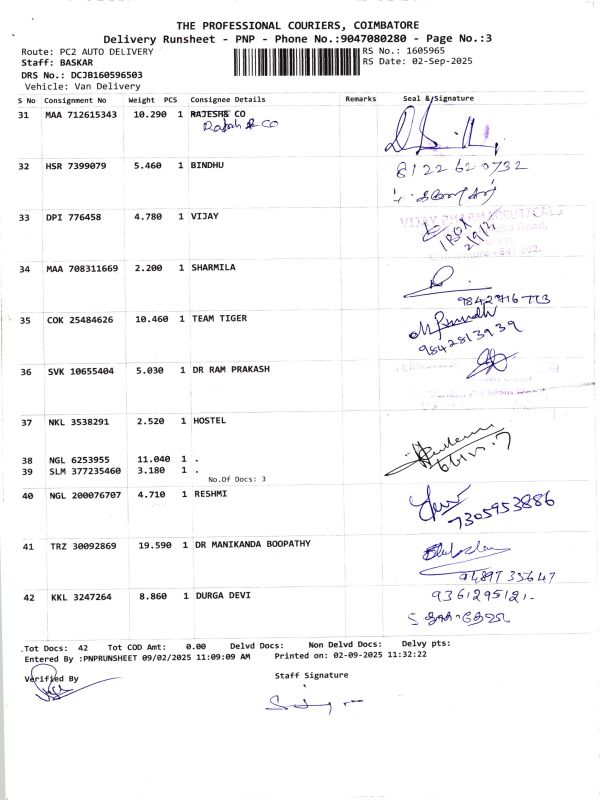 THE PROFESSIONAL COURIERS, COIMBATORE
Delivery Runsheet - PNP - Phone No.:9047080280 - Page No.:3
Route: PC2 AUTO DELIVERY RS No.: 1605965
Staff: BASKAR RS Date: 02-Sep-2025
DRS No.: DCJB160596503
Vehicle: Van Delivery
S No Consignment No Weight PCS Consignee Details Remarks Seal & Signature
31 MAA 712615343 10.290 1 RAJESH& CO
Rajesh & CO
32 HSR 7399079 5.460 1 BINDHU 8122620732
33 DPI 776458 4.780 1 VIJAY VIJAY PHARMACEUTICALS
1 BOX
2/9/2
34 MAA 708311669 2.200 1 SHARMILA
9842716773
35 COK 25484626 10.460 1 TEAM TIGER
9842813939
36 SVK 10655404 5.030 1 DR RAM PRAKASH
37 NKL 3538291 2.520 1 HOSTEL
38 NGL 6253955 11.040 1 .
39 SLM 377235460 3.180 1 .
No.Of Docs: 3
40 NGL 200076707 4.710 1 RESHMI
7305953886
41 TRZ 30092869 19.590 1 DR MANIKANDA BOOPATHY
9489735647
42 KKL 3247264 8.860 1 DURGA DEVI 9361295121.
Tot Docs: 42 Tot COD Amt: 0.00 Delvd Docs: Non Delvd Docs: Delvy pts:
Entered By :PNPRUNSHEET 09/02/2025 11:09:09 AM Printed on: 02-09-2025 11:32:22
Verified By Staff Signature